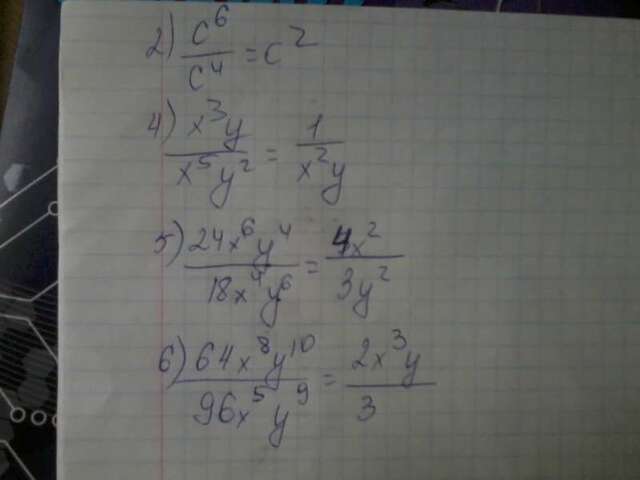 2) c⁶/c⁴ = c²
4) x³y/x⁵y² = 1/x²y
5) 24x⁶y⁴/18x⁴y⁶ = 4x²/3y²
6) 64x⁸y¹⁰/96x⁵y⁹ = 2x³y/3